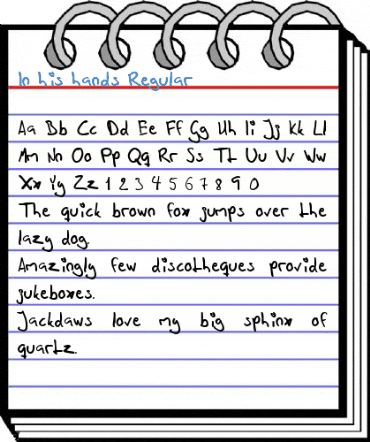 In his hands Regular
Aa Bb Cc Dd Ee Ff Gg Hh Ii Jj Kk Ll
Mm Nn Oo Pp Qq Rr Ss Tt Uu Vv Ww
Xx Yy Zz 1 2 3 4 5 6 7 8 9 0
The quick brown fox jumps over the
lazy dog.
Amazingly few discotheques provide
jukeboxes.
Jackdaws love my big sphinx of
quartz.